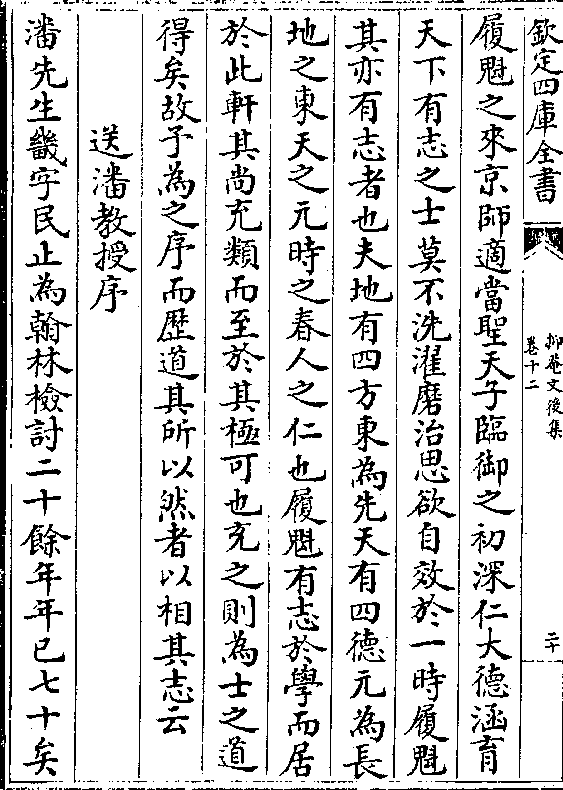 欽定四庫全書
抑菴文後集
卷十二
二十
履魁之來京師適當聖天子臨御之初深仁大德涵育
天下有志之士莫不洗濯磨治思欲自效於一時履魁
其亦有志者也夫地有四方東為先天有四德元為長
地之東天之元時之春人之仁也履魁有志於學而居
於此軒其尚充類而至於其極可也充之則為士之道
得矣故予為之序而歴道其所以然者以相其志云
送潘教授序
潘先生畿字民止為翰林檢討二十餘年年已七十矣